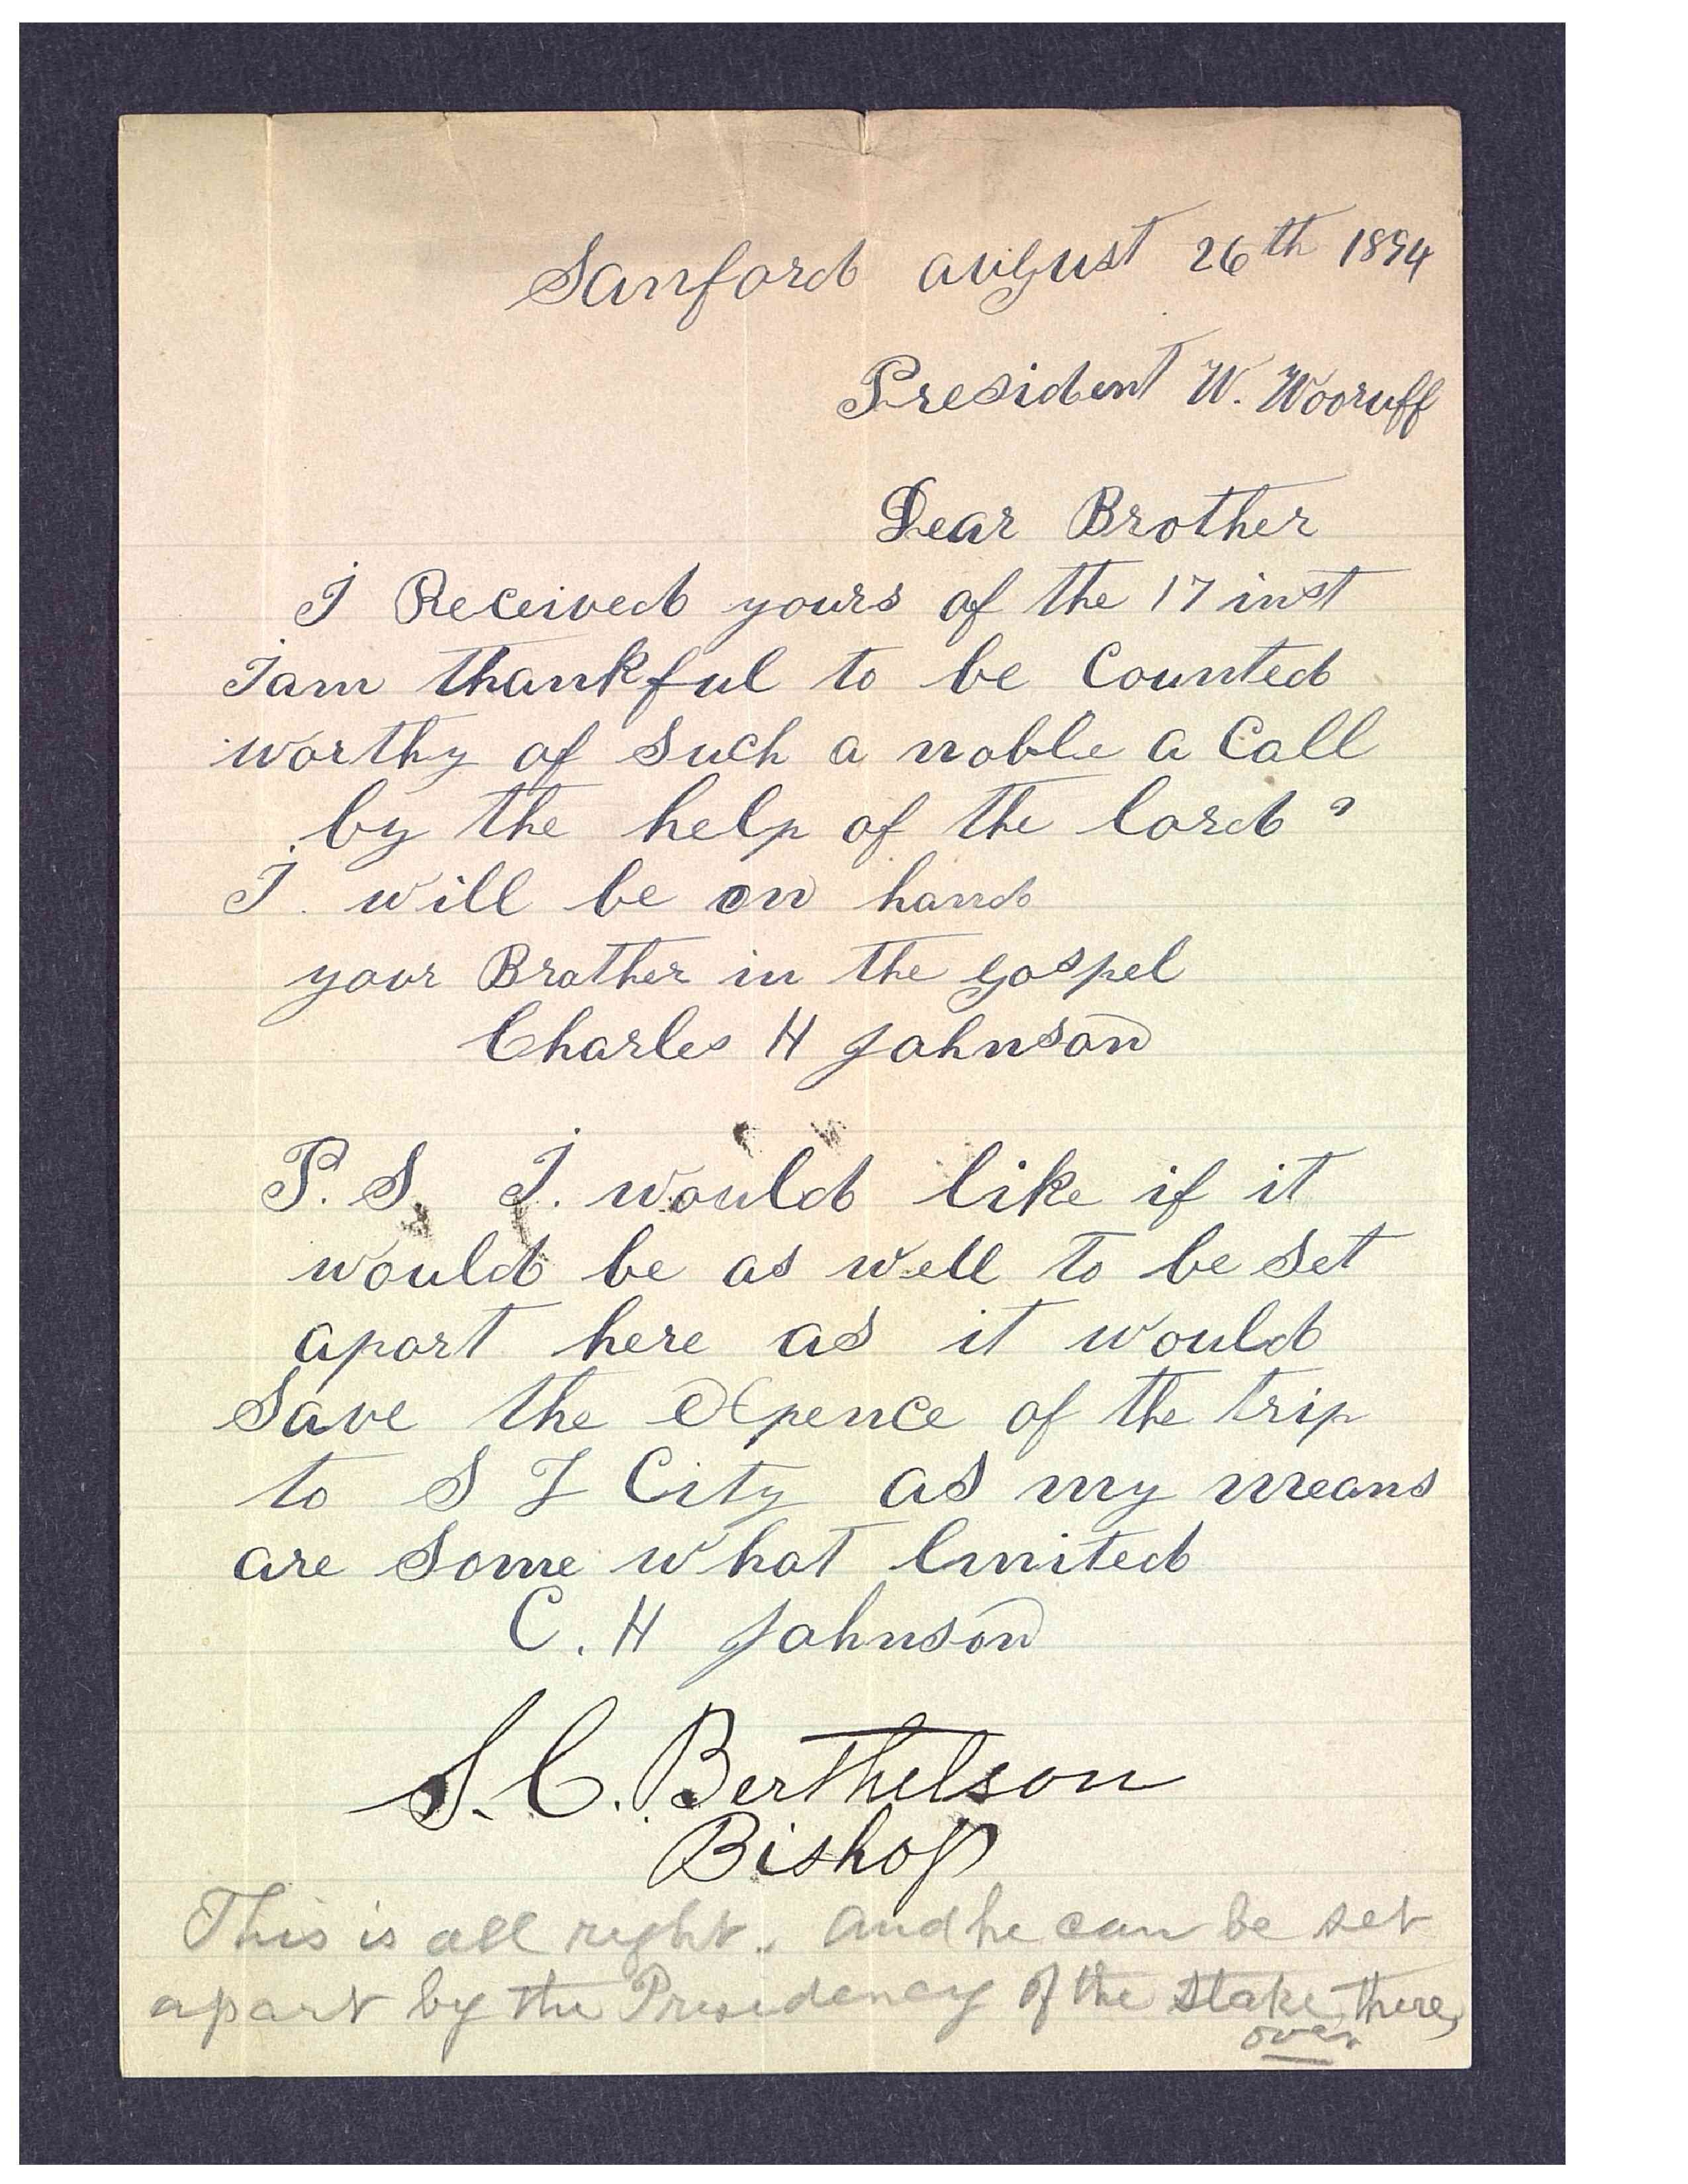 Sanford august 26th 1894
President W. Wooruff
Dear Brother
I Received yours of the 17 inst
I am thankful to be Counted
worthy of Such a noble a Call
by the help of the lord
I. will be on hand
your Brother in the gospel
Charles H Johnson
P. S. I. would like if it
would be as well to be Set
apart here as it would
Save the Expence of the trip
to S L City as my means
are Some what limited
C. H Johnson
S. C. Berthelson
Bishop
This is all right. And he can be set
apart by the Presidency of the Stake there,
over